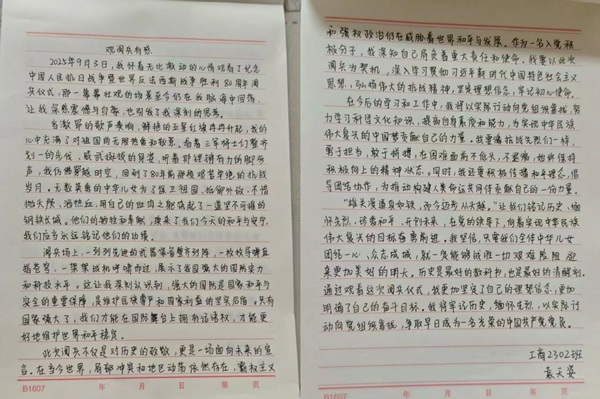 观阅兵有感
2025年9月3日,我怀着无比激动的心情观看了纪念
中国人民抗日战争暨世界反法西斯战争胜利80周年阅
兵仪式,那一幕幕壮观的场景至今仍在我脑海中回荡,
让我深感震撼与自豪,也引发了我深刻的思考。
当激昂的歌声奏响,鲜艳的五星红旗冉冉升起,我的
心中充满了对祖国的无限热爱和敬意。看着三军将士们整齐
划一的步伐、威武挺拔的身姿,听着那铿锵有力的脚步
声,我仿佛穿越时空,回到了80年前那段艰苦卓绝的抗战
岁月。无数英勇的中华儿女为了保卫祖国、抵御外敌,不惜
抛头颅、洒热血,用自己的血肉之躯筑起了一道坚不可摧的
钢铁长城。他们的牺牲和奉献,换来了我们今天的和平与安宁,
我们应当永远铭记他们的功绩。
阅兵场上,一列列先进的武器装备整齐列阵,一枚枚导弹直
指苍穹,一架架战机呼啸而过,展示了我国强大的国防实力
和科技水平。这让我深刻认识到,强大的国防是国家和平与
安全的重要保障,是维护民族尊严和国家利益的坚实后盾。只有
国家强大了,我们才能在国际舞台上拥有话语权,才能更
好地维护世界和平稳定。
此次阅兵不仅是对历史的致敬,更是一场面向未来的宣
言。在当今世界,局部冲突和地区动荡依然存在,霸权主义
B1607 年 月 日 第 页
和强权政治仍在威胁着世界和平与发展。作为一名入党积
极分子,我深知自己肩负着重大责任和使命。我要以此次
阅兵为契机,深入学习贯彻习近平新时代中国特色社会主义
思想,弘扬伟大的抗战精神,坚定理想信念,牢记初心使命。
在今后的学习和工作中,我将以实际行动向党组织靠拢,努
力学习科学文化知识,提高自身素质和能力,为实现中华民族
伟大复兴的中国梦贡献自己的力量。我要像抗战先烈们一样,
勇于担当,敢于拼搏,在困难面前不低头、不退缩,始终保持
积极向上的精神状态。同时,我还要积极传播和平理念,倡
导团结协作,为推动构建人类命运共同体贡献自己的一份力量。
“雄关漫道真如铁,而今迈步从头越。”让我们铭记历史、缅
怀先烈、珍爱和平、开创未来,在党的领导下,向着实现中华民族
伟大复兴的目标奋勇前进。我坚信,只要我们全体中华儿女
团结一心、众志成城,就一定能够战胜一切艰难险阻,迎
来更加美好的明天。历史是最好的教科书,也是最好的清醒剂。
通过观看这次阅兵仪式,我更加坚定了自己的理想信念,更加
明确了自己的奋斗目标。我将牢记历史,缅怀先烈,以实际行
动向党组织靠拢,争取早日成为一名光荣的中国共产党党员。
工商2302班
袁天姿
B1607 年 月 日 第 页